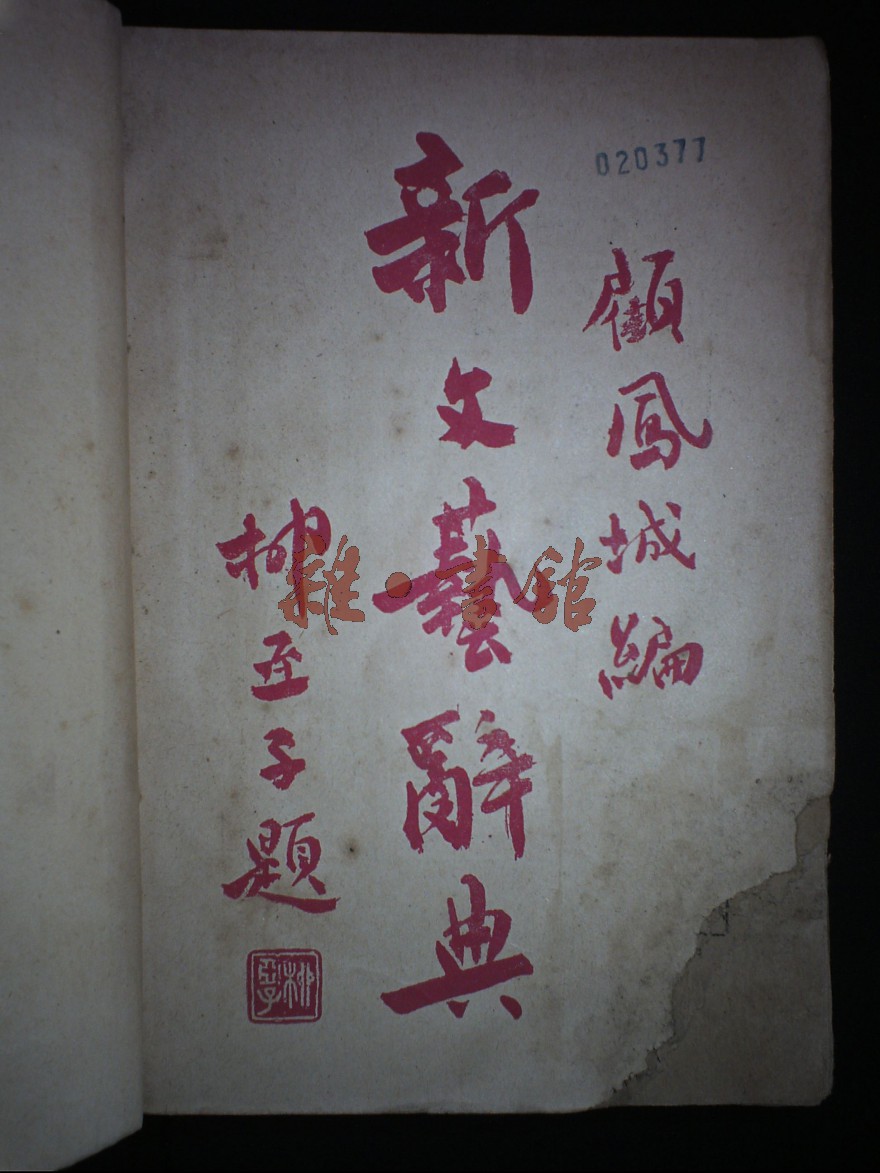 020377
顧鳳城編
新文藝辭典
柳亞子題
柳亞子
雜·書館